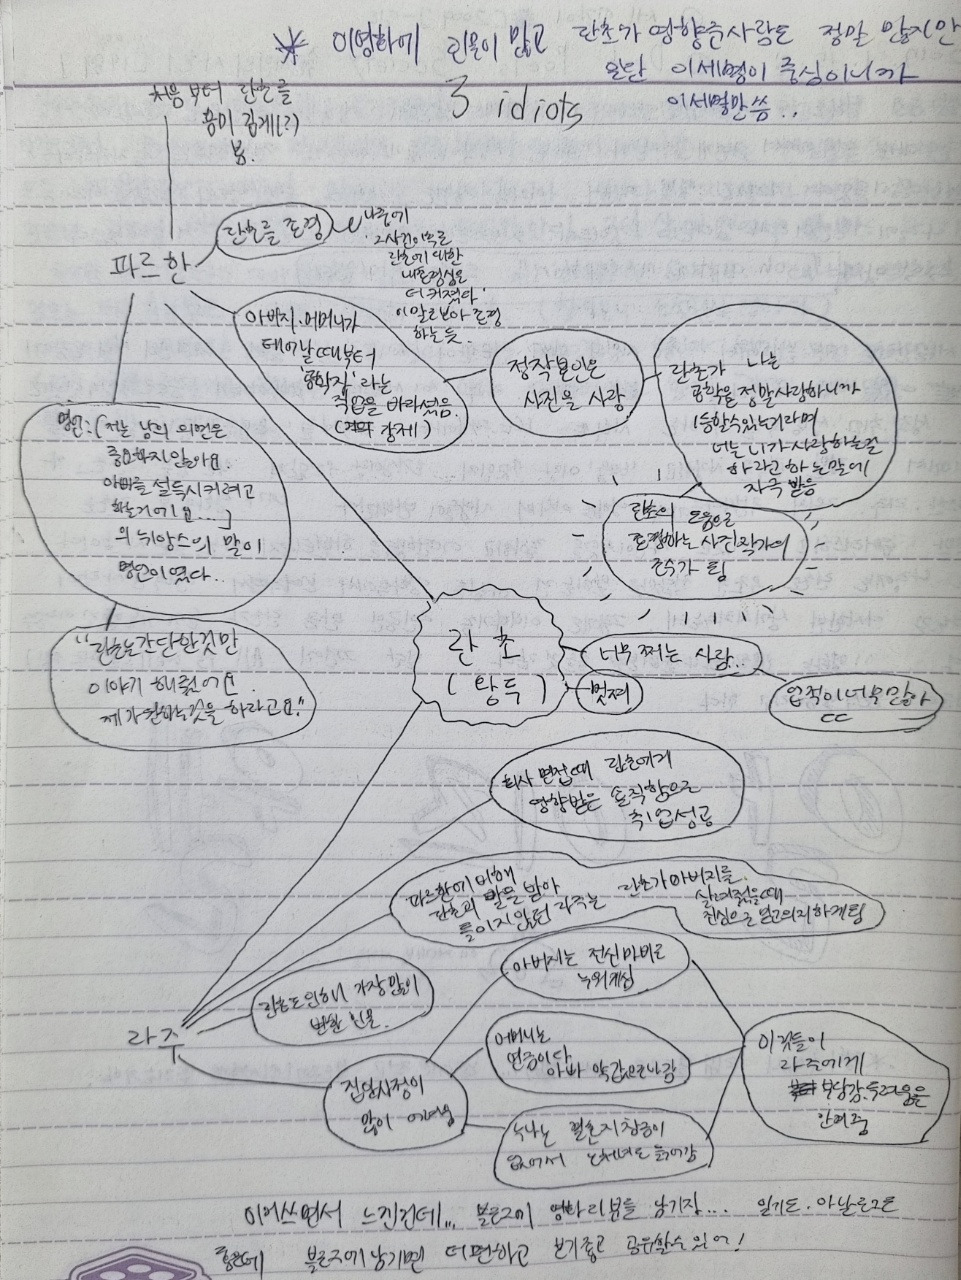 ※ 이영화에 인물이 많고 란초가 영향준사람도 정말 많지만
일단 이세명이 중심이니까
이세명만 씀..
3 idiots
처음부터 란초를
흥미롭게(?)
봄.
파르한
란초를 존경
나중에
란초에 대한
내 존경심은
더 커졌다'
이 말로 보아 존경
하는듯..
아버지, 어머니가
태어날때부터
'공학자' 라는
직업을 바라셨음.
(거의 강제)
정작 본인은
사진을 사랑
란초가 나는
공학을 정말 사랑하니까
1등할수있는거라며
너는 니가 사랑하는걸
하라고 하는 말에
자극 받음
란초의 도움으로
존경하는 사진작가의
조수가 됨
명언:(저는 남의 의견은
중요하지 않아요.
아빠를 설득시키려고
하는거에요....)
의 뉘앙스의 말이
명언이였다..
"란초는 간단한것만
이야기 해줬어요.
제가 원하는것을 하라고요."
란초
(촹투)
너무 쩌는 사람..
멋쪄
업적이 너무 많아
cc
회사 면접때 란초에게
영향받은 솔직함으로
취업성공
파르한에 비해
란초의 말을 받아
들이지않던 라주는
란초가 아버지를
살려줬을때
진심으로 믿고의지하게됨
라주
란초로 인해 가장 많이
변한 인물.
집안사정이
많이 어려움
아버지는 전신마비로
누워계심
어머니는
연금이다
아빠 약값으로나감
누나는 결혼지참금이
없어서 노처녀로 늙어감
이것들이
라주에게
부담감, 두려움을
안겨줌
이거쓰면서 느낀건데... 블로그에 영화리뷰를 남기자... 일기도. 아날로그도
좋은데 블로그에남기면 더편하고 보기좋고 공유할수있어!